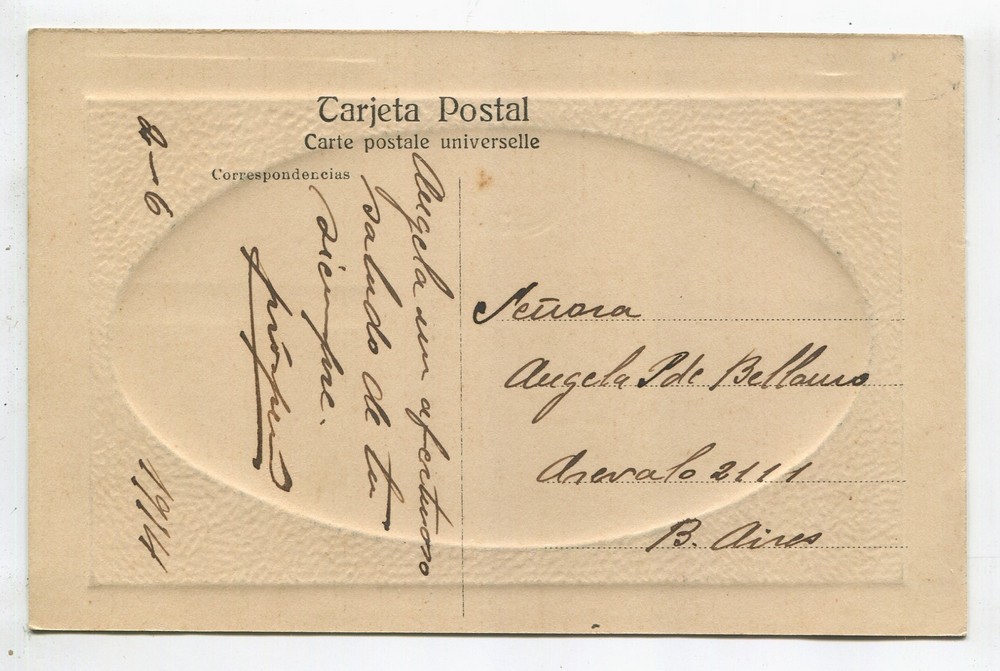 Tarjeta Postal
Carte postale universelle
Correspondencias
2-6
1914
Angela un afectuoso
saludo de tu
siempre.
Próspero
Señora
Angela P de Bellamo
Arevalo 2111
B. Aires